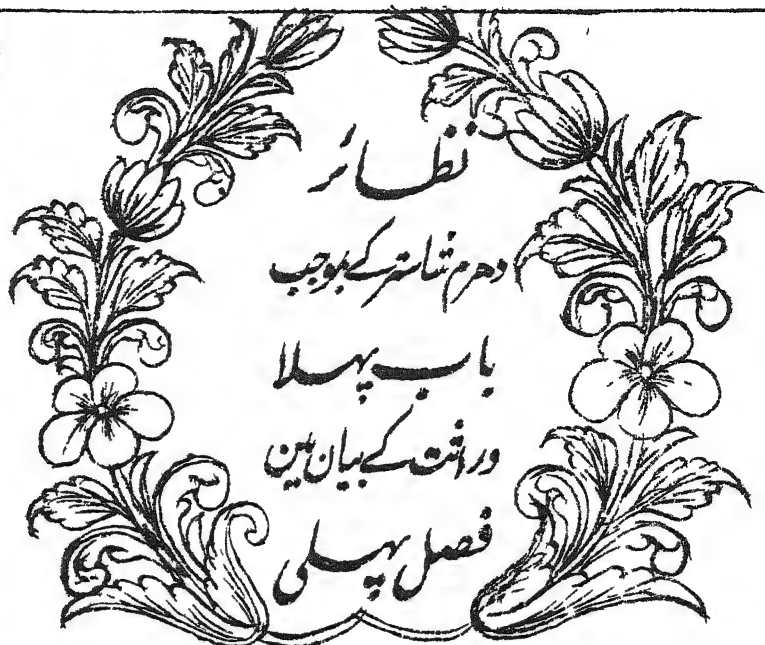 نظائر
دھرم شاستر کے بموجب
باب پہلا
وراثت کے بیان مین
فصل پہلی